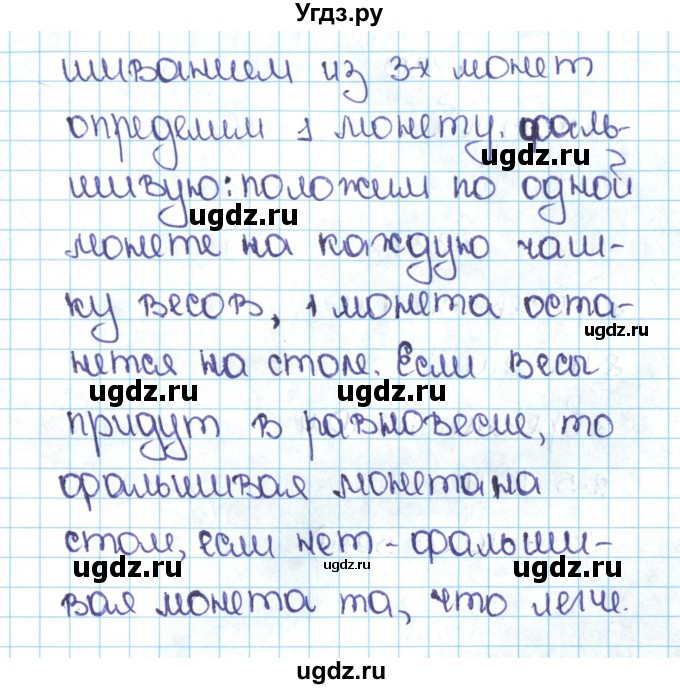 Угдз.ру
шиванием из 3-х монет
определим 1 монету фаль-
ugdz.ru
шивую: положим по одной
ugdz.ru
монете на каждую чаш-
ку весов, 1 монета оста-
ugdz.ru
нется на столе. Если весы
ugdz.ru
придут в равновесие, то
ugdz.ru
фальшивая монета на
столе, если нет - фальши-
ugdz.ru
ugdz.ru
ugdz.ru
вая монета та, что легче.
ugdz.ru